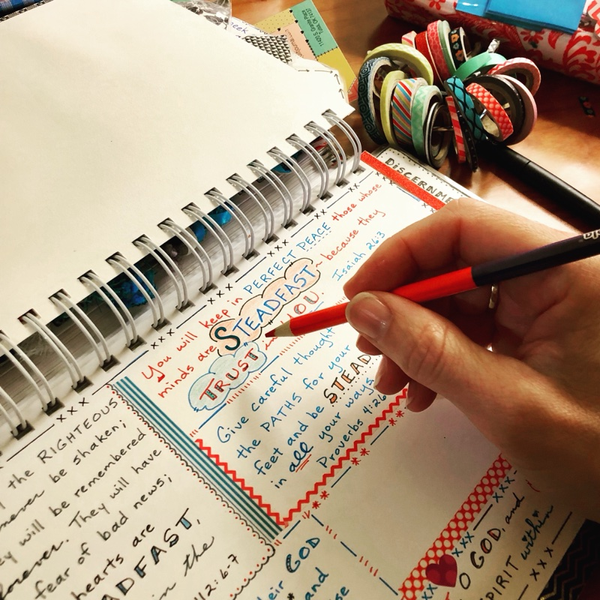 DISCERNME
You will keep in PERFECT PEACE those whose
minds are STEADFAST because they
TRUST in YOU Isaiah 26:3
Give careful thought
the PATHS for your
feet and be STEAD
in all your ways
Proverbs 4:26
the RIGHTEOUS
never be shaken;
they will be remembered
forever. They will have
fear of bad news;
hearts are
ADFAST,
in the
112:6-7
heir GOD
and
O GOD, and
SPIRIT within